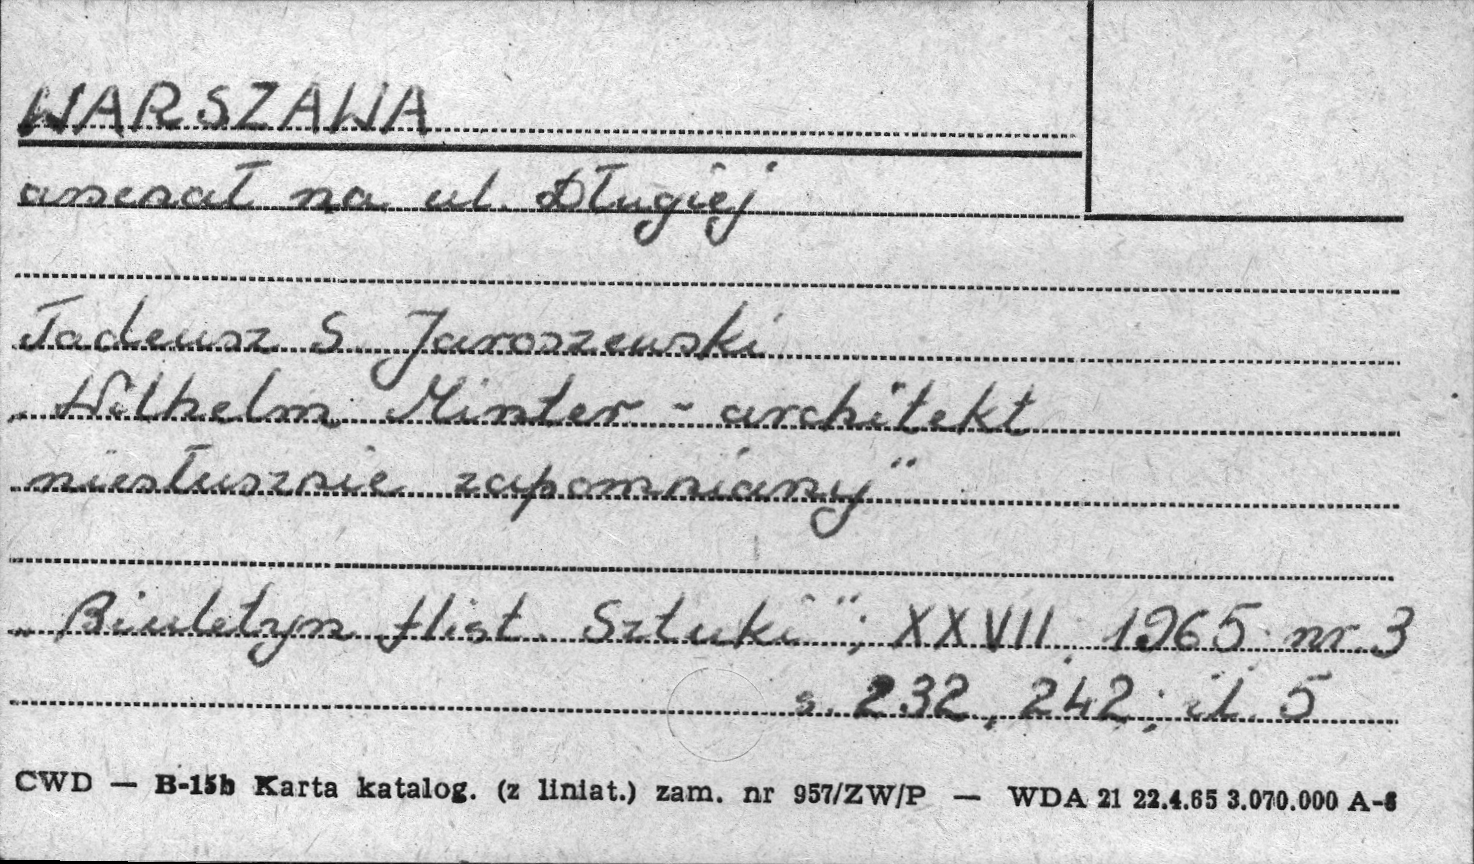 WARSZAWA
arsenał na ul. Długiej
Tadeusz S. Jaroszewski
„Wilhelm Minter - architekt
niesłusznie zapomniany"
„Biuletyn Hist. Sztuki", XXVII, 1965 nr. 3
s. 232, 242; il. 5
CWD — B-15b Karta katalog. (z liniat.) zam. nr 957/ZW/P — WDA 21 22.4.65 3.070.000 A-6